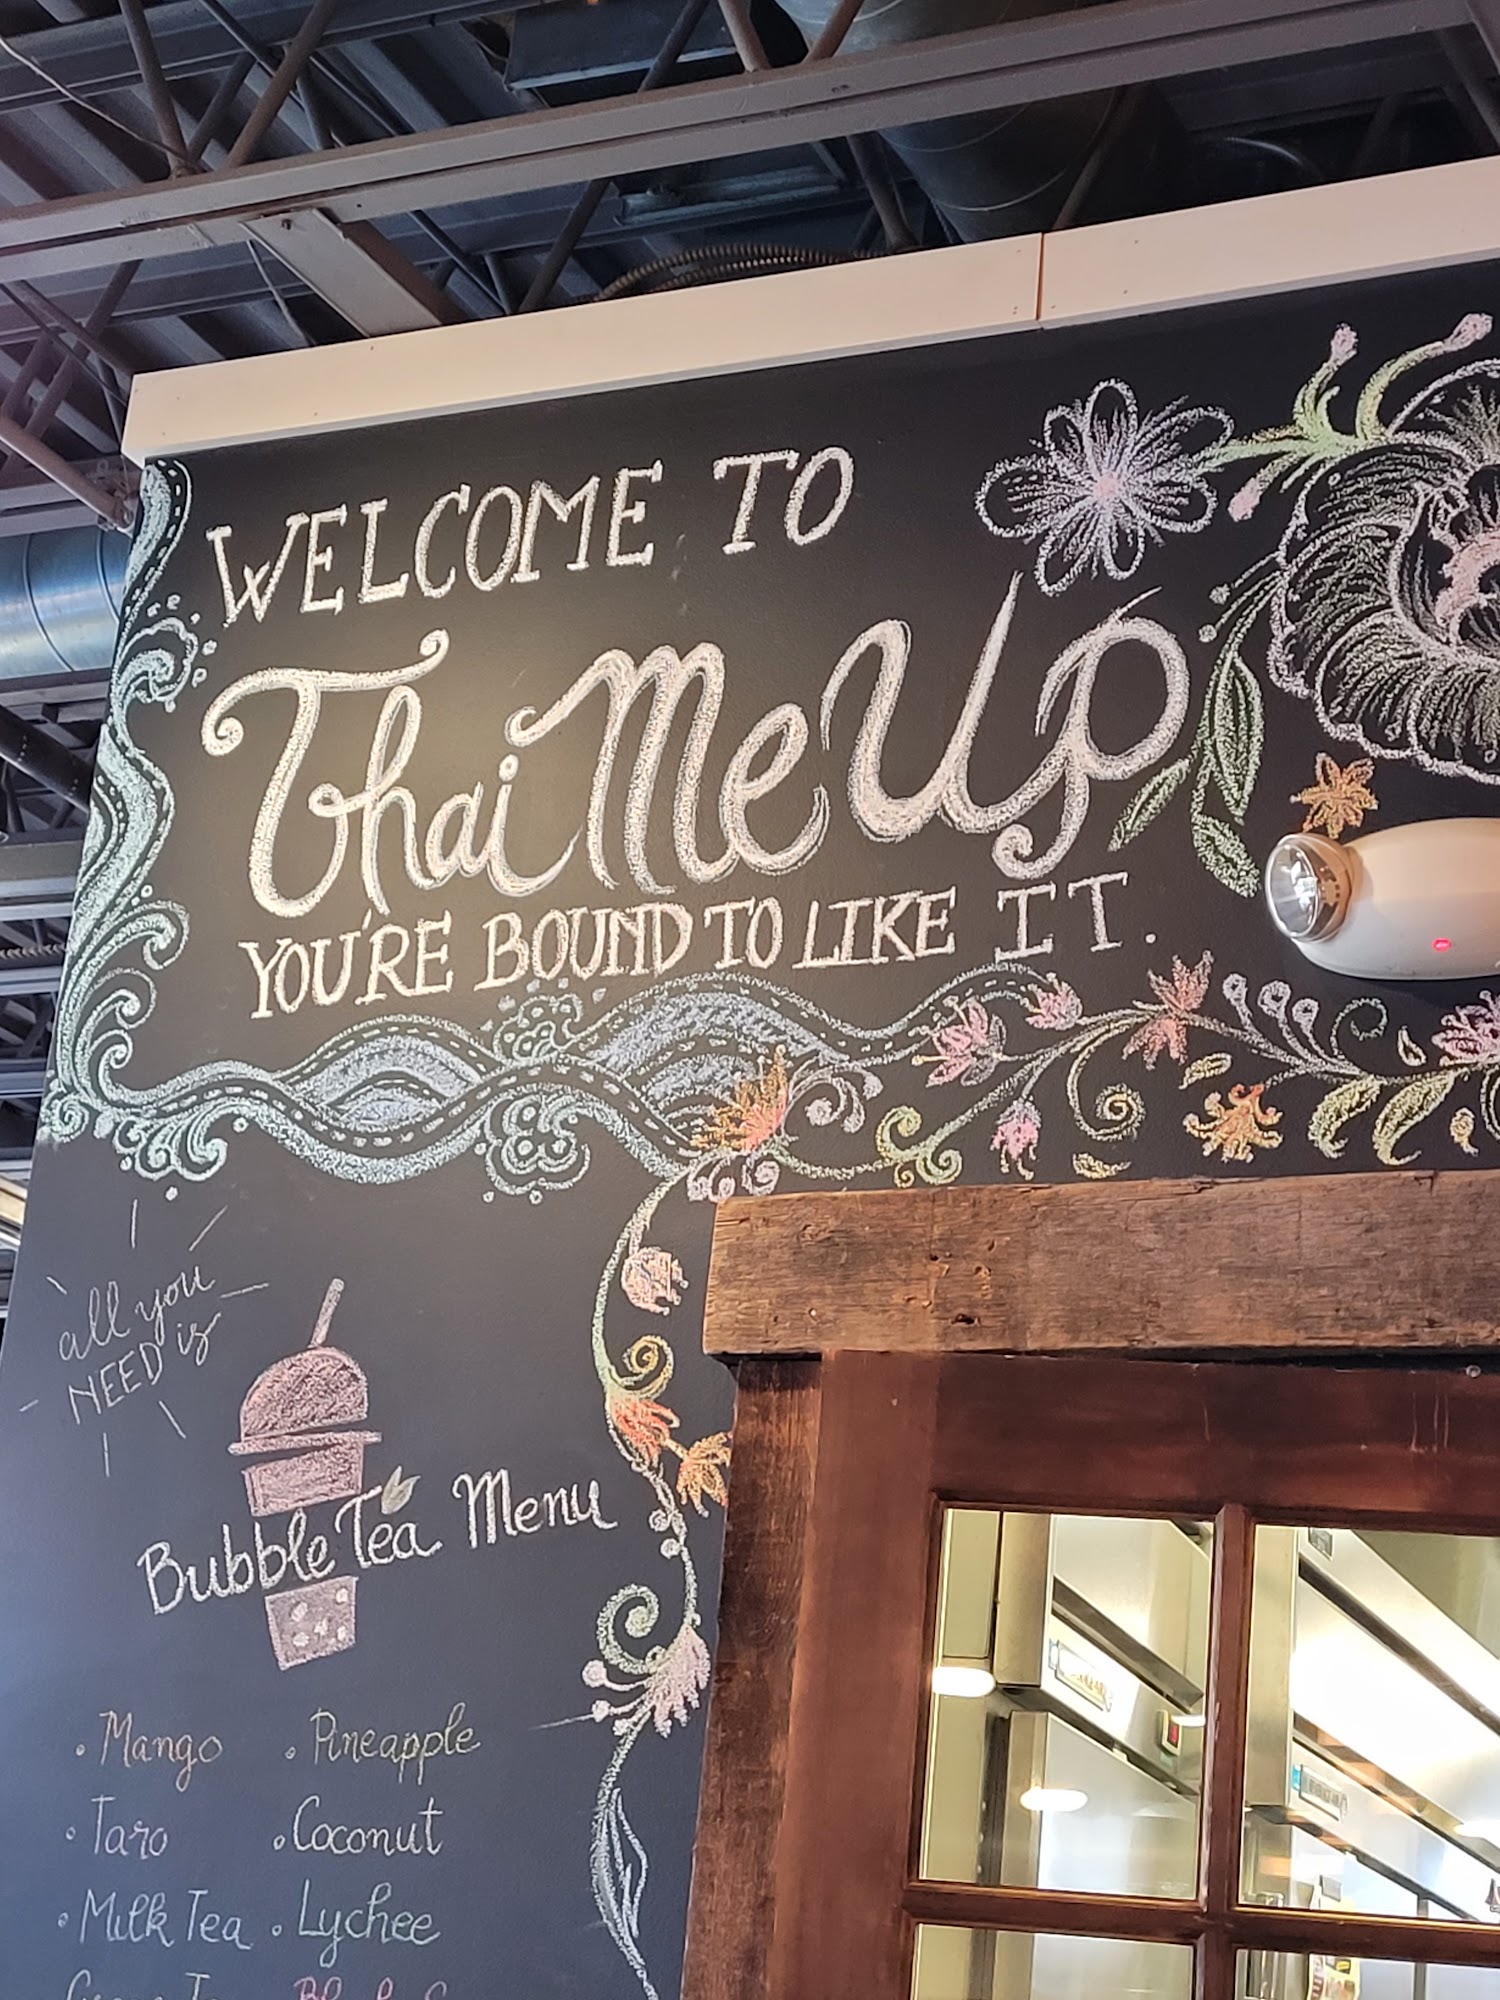 WELCOME TO
Thai Me Up
YOU'RE BOUND TO LIKE IT.
all you
NEED is
Bubble Tea Menu
• Mango • Pineapple
• Taro • Coconut
• Milk Tea • Lychee